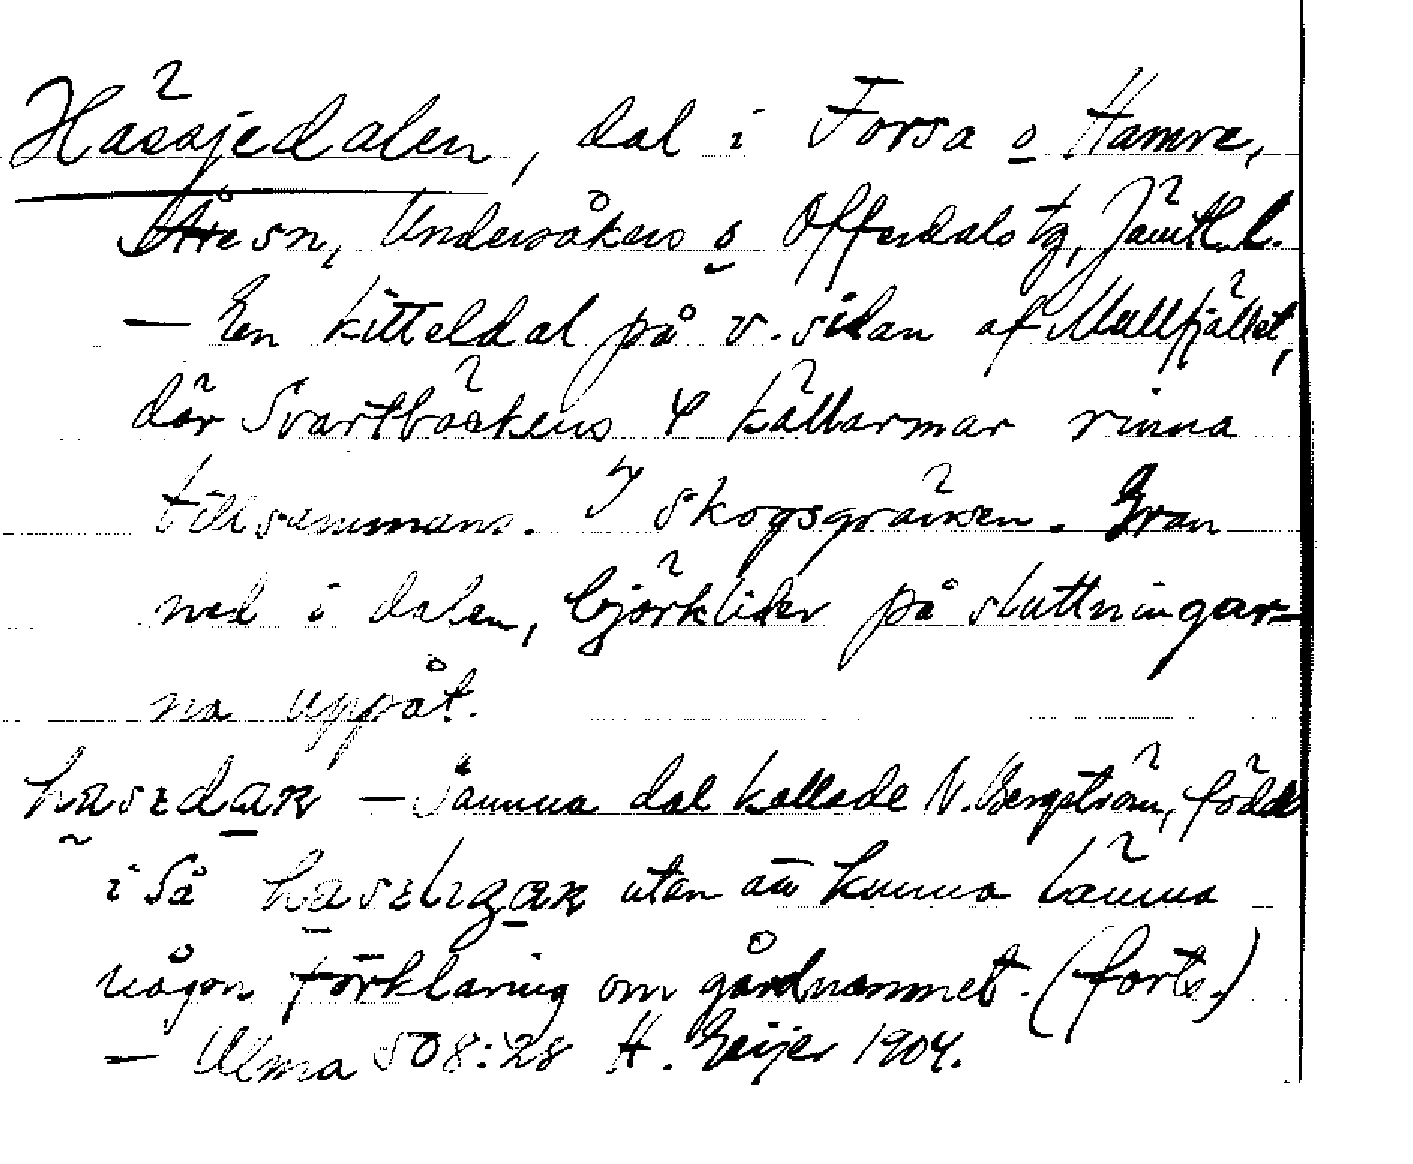 Hässjedalen, dal i Forsa o Hamre,
Åre sn, Undersåkers o Offerdals tg, Jämtl. l.
— En kitteldal på v. sidan af Mullfjället,
där Svartbäckens 4 källarmar rinna
tillsammans. I skogsgränsen. Gran
ned i dalen, björklider på sluttningar-
na uppåt.
— Samma dal kallade N. Bergström, född
i Så utan att kunna lämna
någon förklaring om gårdnamnet. (forts.)
— Ulma 508:28 H. Geijer 1904.